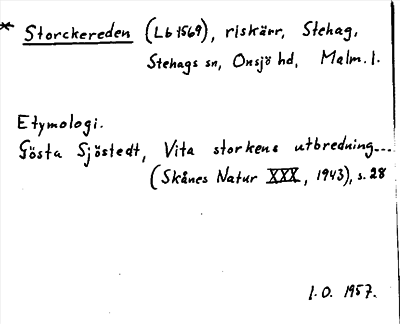 * Storckereden (Lb 1569), riskärr, Stehag,
Stehags sn, Onsjö hd, Malm. l.
Etymologi.
Gösta Sjöstedt, Vita storkens utbredning...
(Skånes Natur XXX, 1943), s. 28
I. O. 1957.